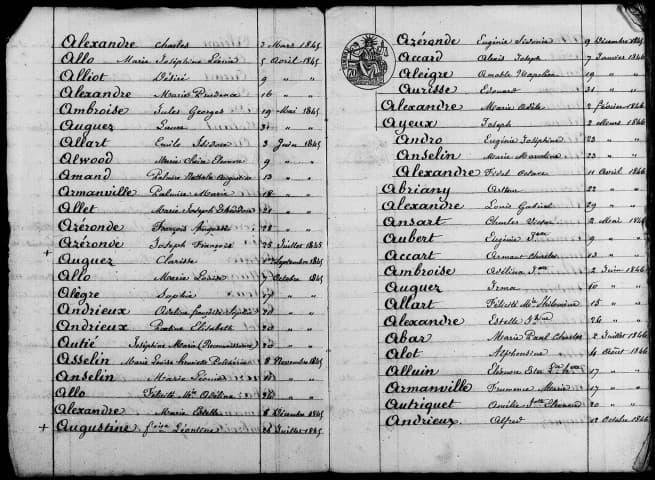 Alexandre Charles 3 Mars 1845
Allo Marie Joséphine Léonie 5 Avril 1845
Alliot Désiré 9 " "
Alexandre Marie Prudence 16 " "
Ambroise Jules Georges 19 Mai 1845
Auguez 31 " "
Allart Emile Isidore 3 Juin 1845
Alwood Marie Clara 9 " "
Amand Palmire Augustine 13 " "
Armanville Palmire Marie 18 " "
Allet Marie Joseph 21 " "
Azéronde François Auguste 28 " "
Azéronde Joseph François 25 Juillet 1845
+ Auguez Clarisse Septembre 1845
Allo Marie Louise 7 Octobre 1845
Alègre Sophie 17 " "
Andrieux Adeline 20 " "
Andrieux Elisabeth 20 " "
Autié Joséphine Marie 20 " "
Asselin Marie Louise Henriette 8 Novembre 1845
Anselin Marie " "
Allo Félicité Mie Adéline 26 " "
Alexandre Marie Estelle 8 Décembre 1845
+ Augustine Juillet 1845
Azéronde Eugénie 9 Décembre 1845
Accard Alexis Joseph 7 Janvier 1846
Aleigre Amable Napoléon 19 " "
Aurisse Edouard 31 " "
Alexandre Marie Adèle 2 Février 1846
Ayeux Joseph 2 Mars 1846
Andro Eugénie Joséphine 23 " "
Anselin Marie 23 " "
Alexandre Fidel 11 Avril 1846
Abriany Arthur 22 " "
Alexandre Louis Gabriel 29 " "
Ansart Charles Victor 2 Mai 1846
Aubert Eugénie 9 " "
Accart Armand Charles 13 " "
Ambroise Adélina 2 Juin 1846
Auguez Irma 10 " "
Allart Félicité Mie Philomène 15 " "
Alexandre Estelle 26 " "
Abar Marie Paul Charles 2 Juillet 1846
Alot Alphonsine 4 Août 1846
Alluin 17 " "
Armanville Marie 17 " "
Autriquet 20 " "
Andrieux Alfred 12 Octobre 1846